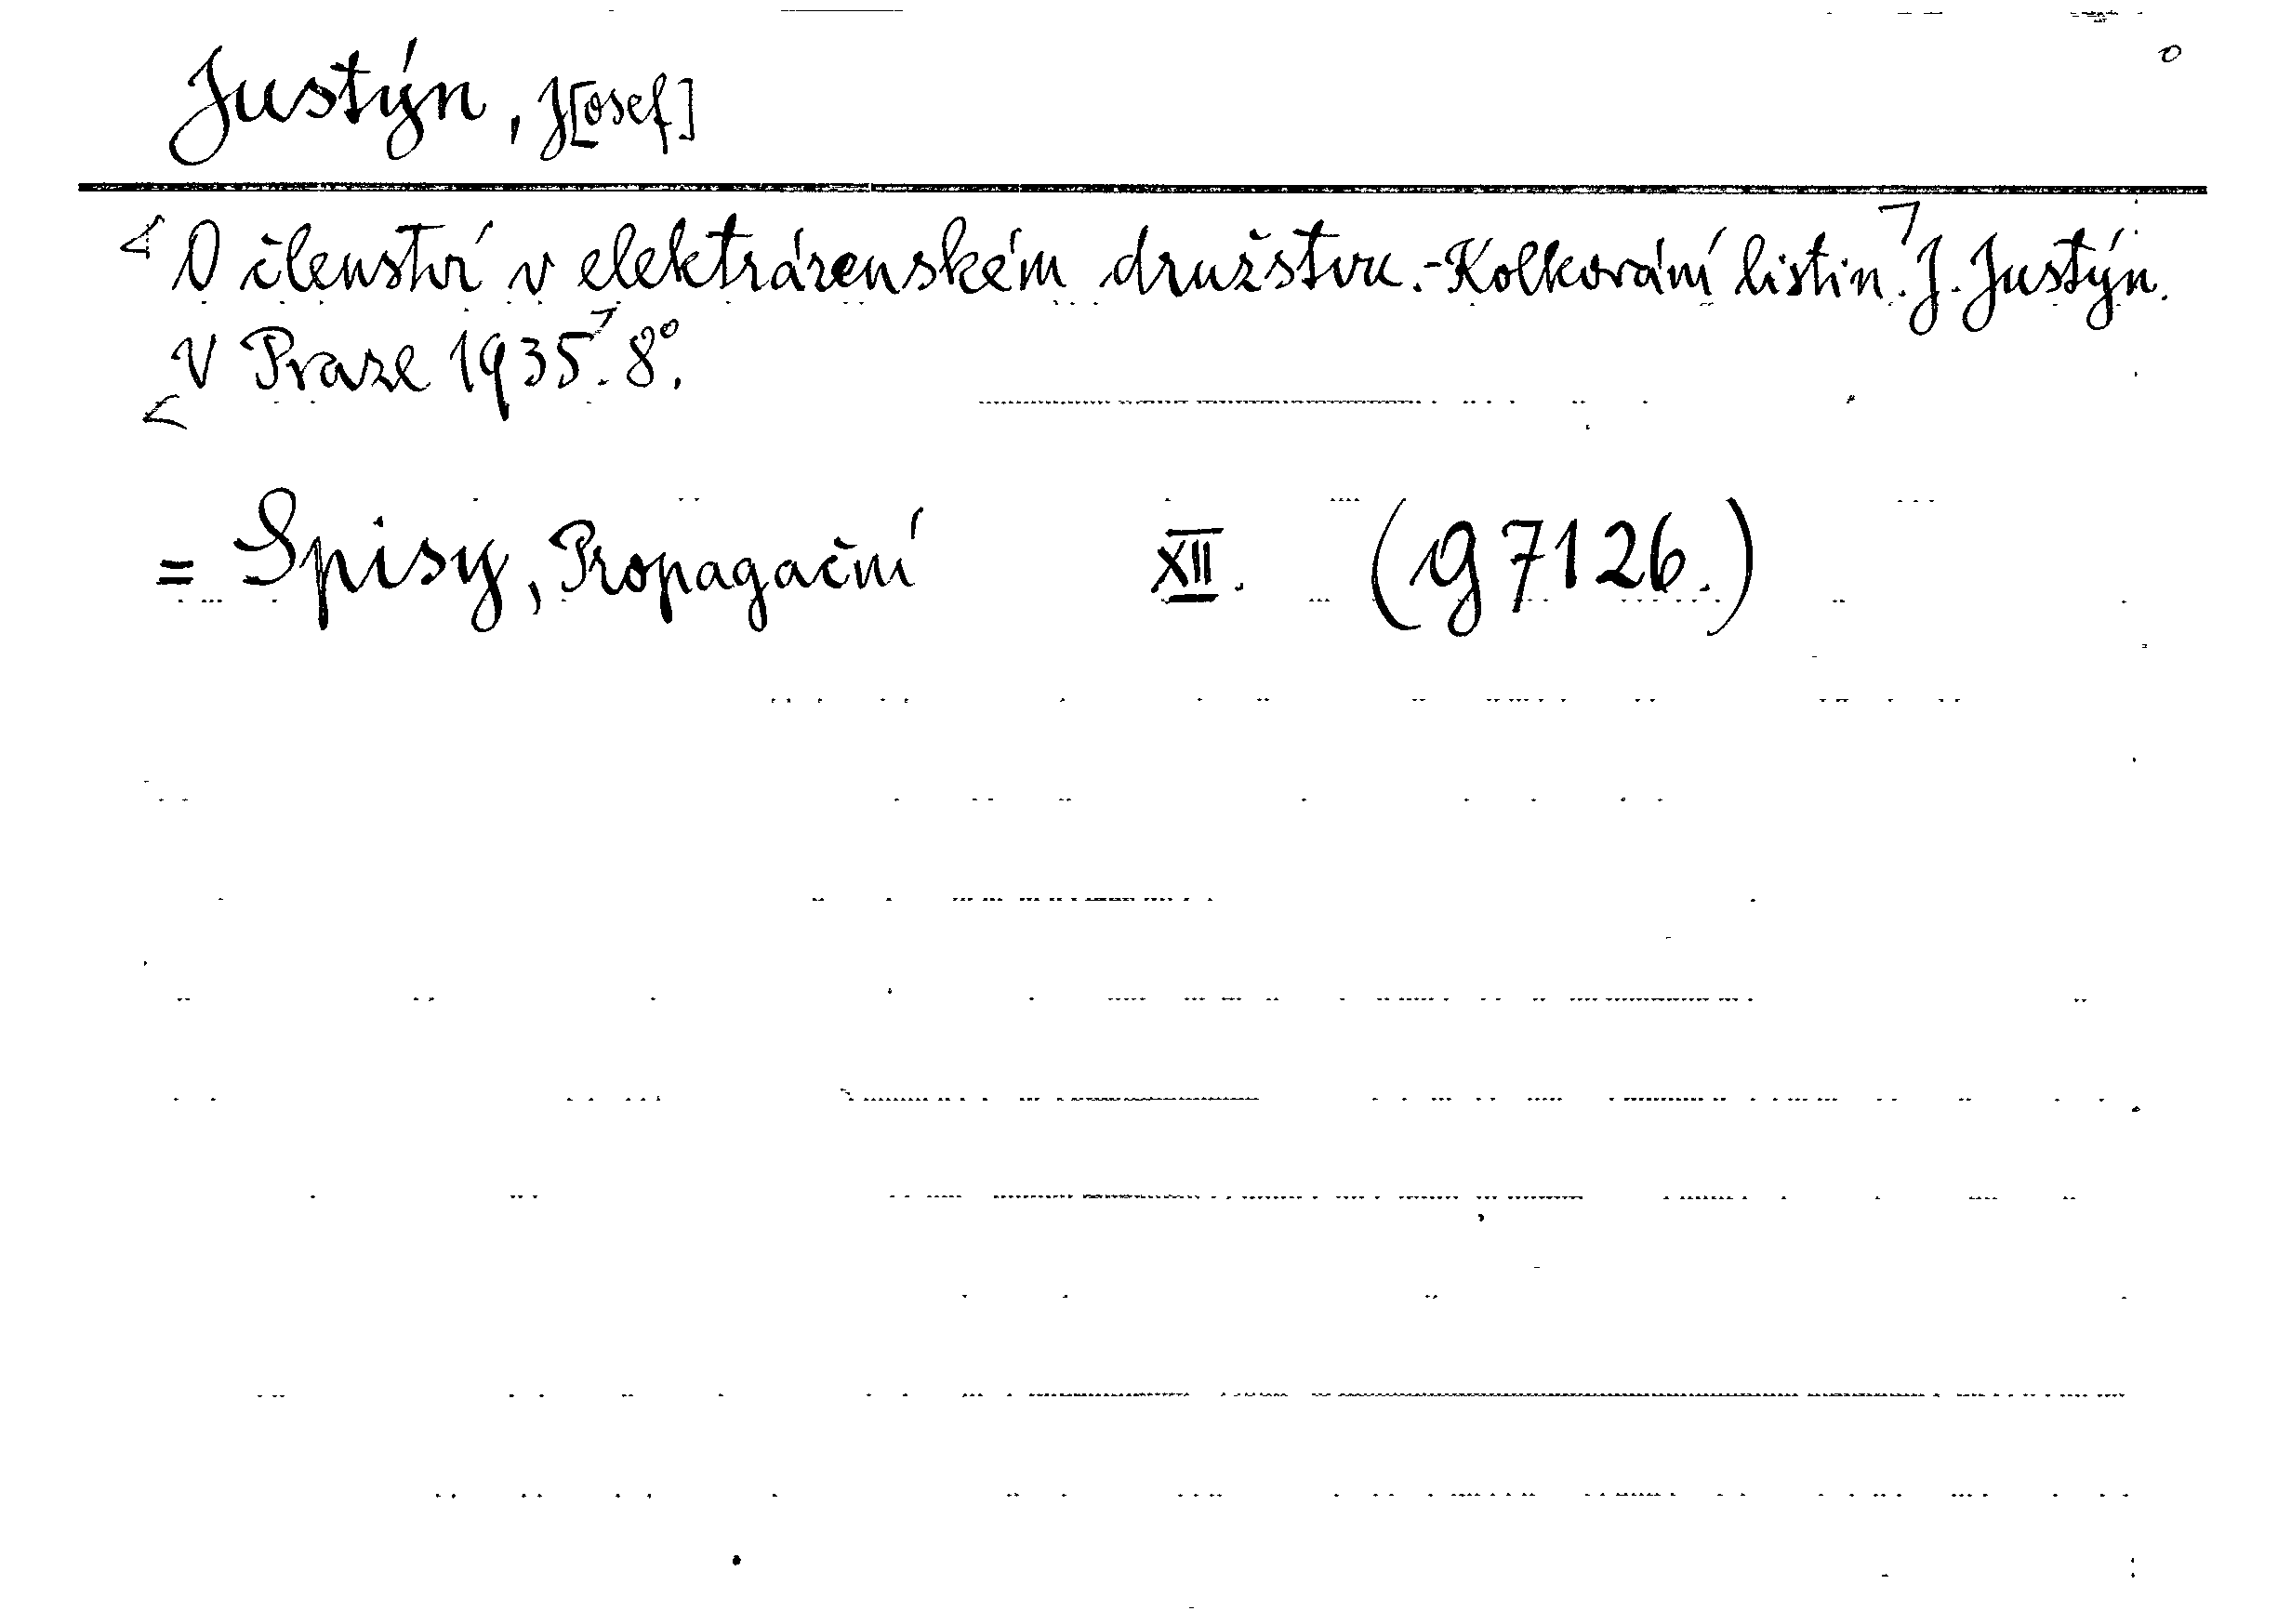 Justýn, J[osef]
O členství v elektrárenském družstvu.-Kolkování listin. J. Justýn.
V Praze 1935. 8°.
= Spisy, Propagační XII. (g 7126.)